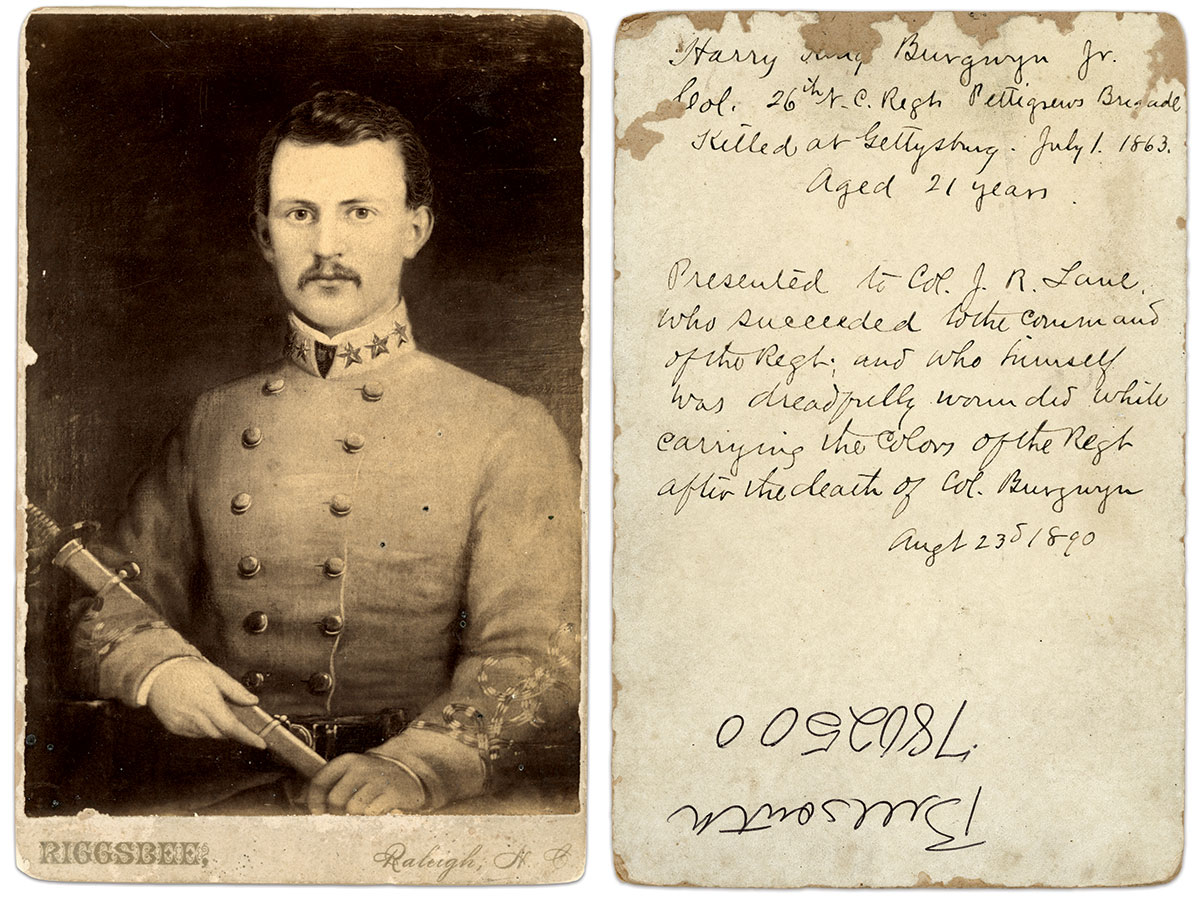 RIGGSBEE,
Raleigh, N. C
Harry King Burgwyn Jr.
Col. 26th N.C. Regt Pettigrews Brigade
Killed at Gettysburg. July 1. 1863.
Aged 21 years.
Presented to Col. J. R. Lane,
who succeeded to the command
of the Regt; and who himself
was dreadfully wounded while
carrying the Colors of the Regt
after the death of Col. Burgwyn
Augt 23d 1890
7802500
Bellsouth